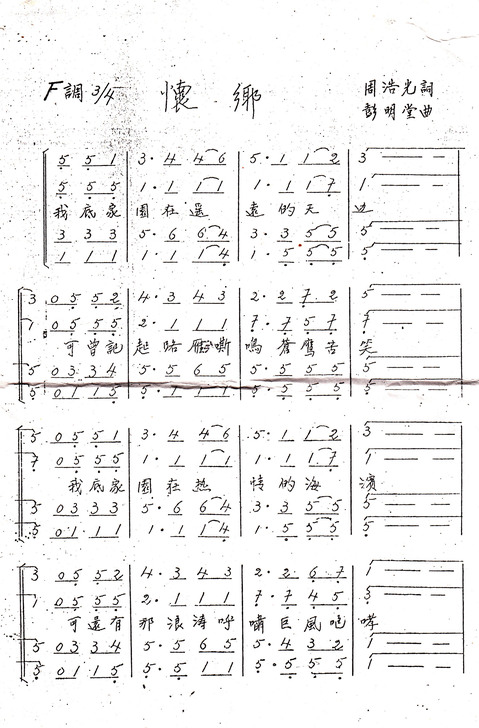 F調 3/4 懷鄉 周浩光詞
彭明堂曲
5 5 1 3· 4 4 6 5· 1 1 2 3 — — —
5 5 5 1· 1 1 1 1· 1 1 7 1 — — —
我底家 園在遥 遠的天 边
3 3 3 5· 6 6 4 3· 3 5 5 5 — — —
1 1 1 1· 1 1 4 1· 5 5 5 5 — — —
3 0 5 5 2 4· 3 4 3 2· 2 7 2 5 — — —
1 0 5 5 5 2· 1 1 1 7· 7 5 7 7 — — —
可曾記 起 雁嘶 鳴蒼鷹苦 笑
5 0 3 3 4 5· 5 6 5 5· 5 5 5 5 — — —
5 0 1 1 5 5· 1 1 1 5· 5 5 5 5 — — —
5 0 5 5 1 3· 4 4 6 5· 1 1 2 3 — — —
7 0 5 5 5 1· 1 1 1 1· 1 1 7 1 — — —
我底家 園在热 情的海 濱
5 0 3 3 3 5· 6 6 4 3· 3 5 5 5 — — —
5 0 1 1 1 1· 1 1 4 1· 5 5 5 5 — — —
3 0 5 5 2 4· 3 4 3 2· 2 6 7 1 — — —
1 0 5 5 5 2· 1 1 1 7· 7 4 5 3 — — —
可還有 那浪涛呼 嘯巨風咆 哮
5 0 3 3 4 5· 5 6 5 5· 4 3 2 1 — — —
5 0 1 1 5 5· 5 1 1 5· 5 5 5 1 — — —